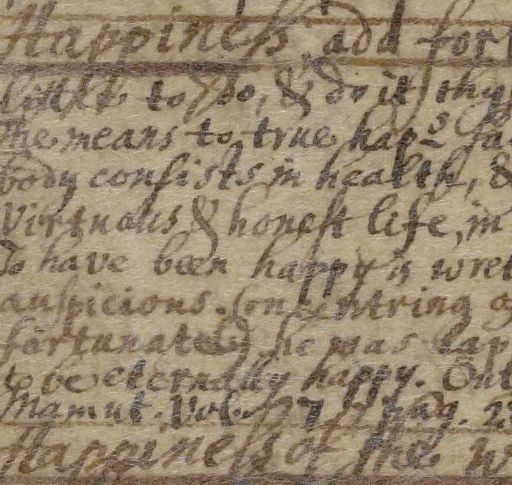 Happiness add for
little to do, & do it thy
the means to true hap.s
body consists in health, &
Virtuous & honest life, in
To have been happy is wret
auspicious.
fortunate) he was
to be eternally happy. Out
Mamut. Vol. 7 pag. 2
Happiness of the w